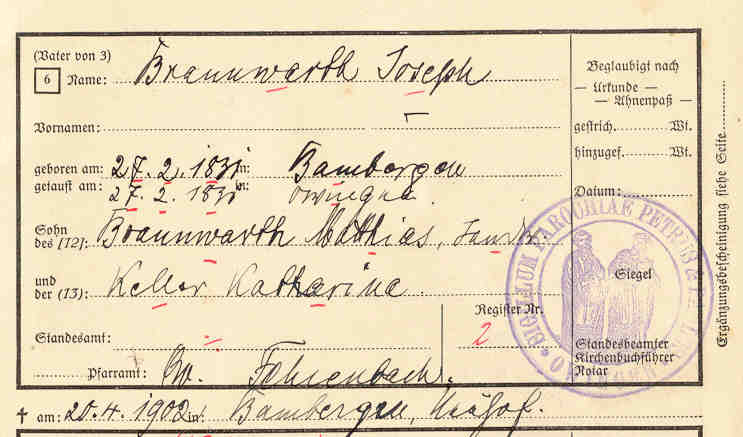 (Vater von 3)
6 Name: Braunwarth Joseph
Vornamen:
geboren am: 27. 2. 183 in: Bambergen
getauft am: 27. 2. 183 in:
Sohn des [12]: Braunwarth Mathias,
und der (13): Keller Katharina
Standesamt:
Pfarramt:
Register Nr. 2
Beglaubigt nach
— Urkunde —
— Ahnenpaß —
gestrich. Wt.
hinzugef. Wt.
Datum:
SIGILLUM PAROCHIAE PETRUS &
Siegel
Standesbeamter
Kirchenbuchführer
Notar
Ergänzungsbescheinigung siehe Seite
† am: 20. 4. 1902 in: Bambergen,